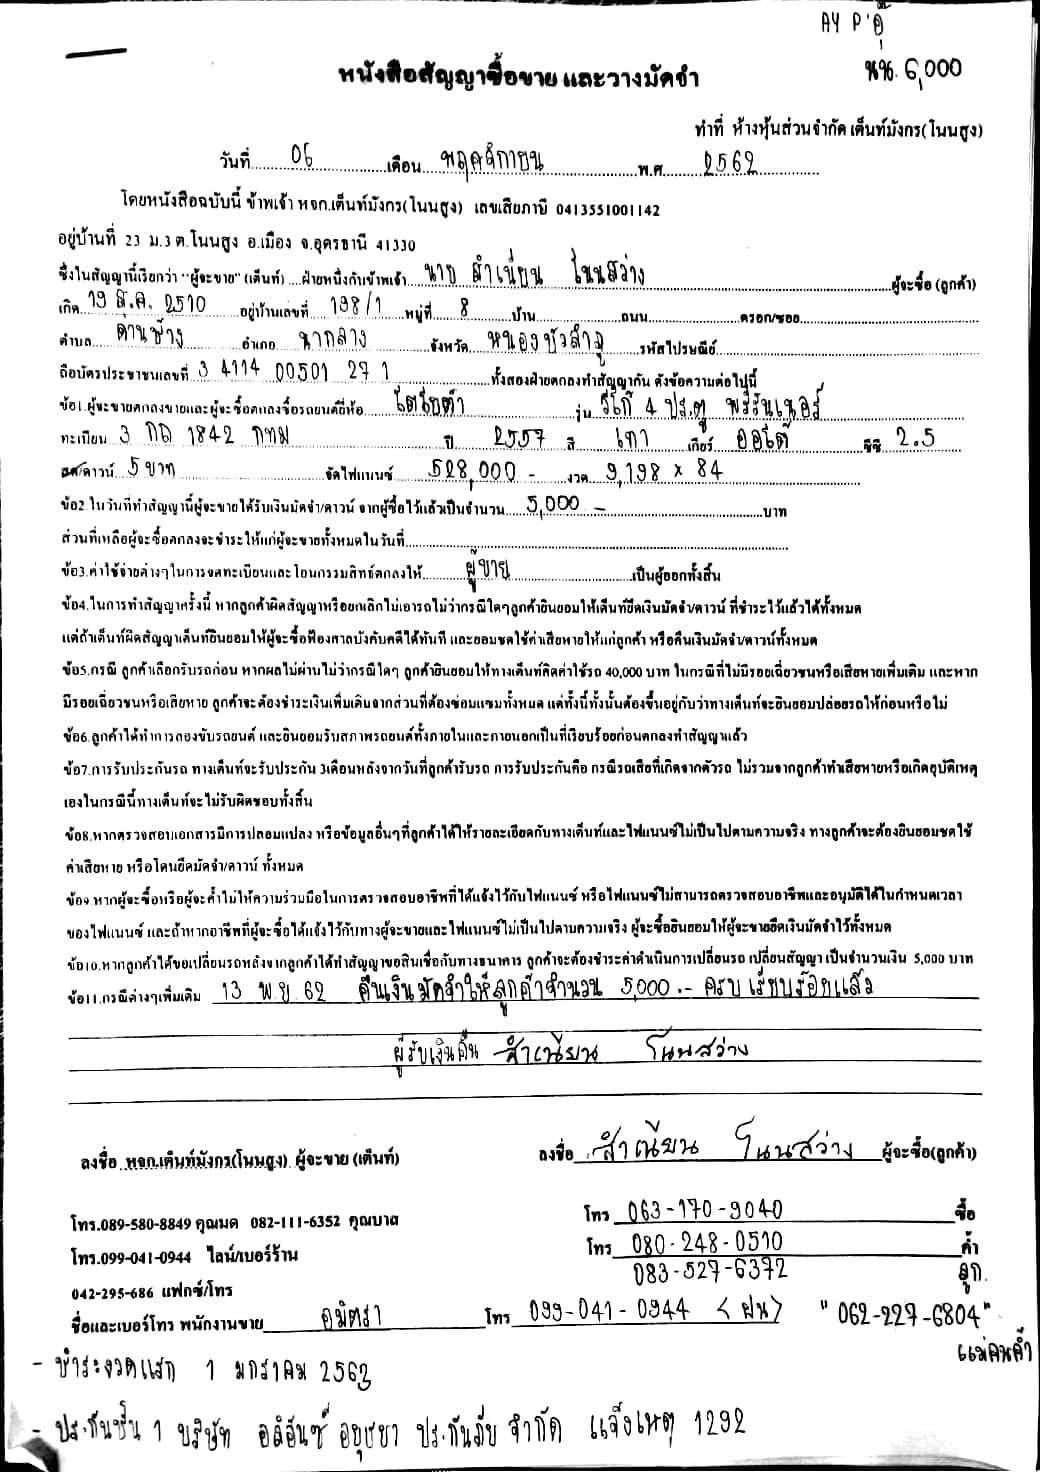 AY P'อุ๊
หนังสือสัญญาซื้อขาย และวางมัดจำ
นน. 6,000
ทำที่ ห้างหุ้นส่วนจำกัด เต็นท์มังกร(โนนสูง)
วันที่ 06 เดือน พฤศจิกายน พ.ศ 2562
โดยหนังสือฉบับนี้ ข้าพเจ้า หจก.เต็นท์มังกร(โนนสูง) เลขเสียภาษี 0413551001142
อยู่บ้านที่ 23 ม.3 ต.โนนสูง อ.เมือง จ.อุดรธานี 41330
ซึ่งในสัญญานี้เรียกว่า "ผู้จะขาย" (เต็นท์) ....ฝ่ายหนึ่งกับข้าพเจ้า นาย สำเนียน โนนสว่าง ผู้จะซื้อ (ลูกค้า)
เกิด 19 ส.ค. 2510 อยู่บ้านเลขที่ 198/1 หมู่ที่ 8 บ้าน ถนน ตรอก/ซอย
ตำบล ด่านช้าง อำเภอ นากลาง จังหวัด หนองบัวลำภู รหัสไปรษณีย์
ถือบัตรประชาชนเลขที่ 3 4114 00501 27 1 ทั้งสองฝ่ายตกลงทำสัญญากัน ดังข้อความต่อไปนี้
ข้อ1.ผู้จะขายตกลงขายและผู้จะซื้อตกลงซื้อรถยนต์ยี่ห้อ โตโยต้า รุ่น วีโก้ 4 ประตู พรีรันเนอร์
ทะเบียน 3 กถ 1842 กทม ปี 2557 สี เทา เกียร์ ออโต้ ซีซี 2.5
สด/ดาวน์ 5 บาท จัดไฟแนนซ์ 528,000 - งวด 9,198 x 84
ข้อ2.ในวันที่ทำสัญญานี้ผู้จะขายได้รับเงินมัดจำ/ดาวน์ จากผู้ซื้อไว้แล้วเป็นจำนวน 5,000 - บาท
ส่วนที่เหลือผู้จะซื้อตกลงจะชำระให้แก่ผู้จะขายทั้งหมดในวันที่
ข้อ3.ค่าใช้จ่ายต่างๆในการจดทะเบียนและโอนกรรมสิทธิ์ตกลงให้ ผู้ขาย เป็นผู้ออกทั้งสิ้น
ข้อ4.ในการทำสัญญาครั้งนี้ หากลูกค้าผิดสัญญาหรือยกเลิกไม่เอารถไม่ว่ากรณีใดๆลูกค้ายินยอมให้เต็นท์ยึดเงินมัดจำ/ดาวน์ ที่ชำระไว้แล้วได้ทั้งหมด
แต่ถ้าเต็นท์ผิดสัญญาเต็นท์ยินยอมให้ผู้จะซื้อฟ้องศาลบังคับคดีได้ทันที และยอมชดใช้ค่าเสียหายให้แก่ลูกค้า หรือคืนเงินมัดจำ/ดาวน์ทั้งหมด
ข้อ5.กรณี ลูกค้าเลือกรับรถก่อน หากผลไม่ผ่านไม่ว่ากรณีใดๆ ลูกค้ายินยอมให้ทางเต็นท์คิดค่าใช้รถ 40,000 บาท ในกรณีที่ไม่มีรอยเฉี่ยวชนหรือเสียหายเพิ่มเติม และหาก
มีรอยเฉี่ยวชนหรือเสียหาย ลูกค้าจะต้องชำระเงินเพิ่มเติมจากส่วนที่ต้องซ่อมแซมทั้งหมด แต่ทั้งนี้ทั้งนั้นต้องขึ้นอยู่กับว่าทางเต็นท์จะยินยอมปล่อยรถให้ก่อนหรือไม่
ข้อ6.ลูกค้าได้ทำการลองขับรถยนต์ และยินยอมรับสภาพรถยนต์ทั้งภายในและภายนอกเป็นที่เรียบร้อยก่อนตกลงทำสัญญาแล้ว
ข้อ7.การรับประกันรถ ทางเต็นท์จะรับประกัน 3เดือนหลังจากวันที่ลูกค้ารับรถ การรับประกันคือ กรณีรถเสียที่เกิดจากตัวรถ ไม่รวมจากลูกค้าทำเสียหายหรือเกิดอุบัติเหตุ
เองในกรณีนี้ทางเต็นท์จะไม่รับผิดชอบทั้งสิ้น
ข้อ8.หากตรวจสอบเอกสารมีการปลอมแปลง หรือข้อมูลอื่นๆที่ลูกค้าได้ให้รายละเอียดกับทางเต็นท์และไฟแนนซ์ไม่เป็นไปตามความจริง ทางลูกค้าจะต้องยินยอมชดใช้
ค่าเสียหาย หรือโดนยึดมัดจำ/ดาวน์ ทั้งหมด
ข้อ9 หากผู้จะซื้อหรือผู้จะค้ำไม่ให้ความร่วมมือในการตรวจสอบอาชีพที่ได้แจ้งไว้กับไฟแนนซ์ หรือไฟแนนซ์ไม่สามารถตรวจสอบอาชีพและอนุมัติได้ในกำหนดเวลา
ของไฟแนนซ์ และถ้าหากอาชีพที่ผู้จะซื้อได้แจ้งไว้กับทางผู้จะขายและไฟแนนซ์ไม่เป็นไปตามความจริง ผู้จะซื้อยินยอมให้ผู้จะขายยึดเงินมัดจำไว้ทั้งหมด
ข้อ10.หากลูกค้าได้ขอเปลี่ยนรถหลังจากลูกค้าได้ทำสัญญาขอสินเชื่อกับทางธนาคาร ลูกค้าจะต้องชำระค่าดำเนินการเปลี่ยนรถ เปลี่ยนสัญญา เป็นจำนวนเงิน 5,000 บาท
ข้อ11.กรณีต่างๆเพิ่มเติม 13 พ.ย 62 คืนเงินมัดจำให้ลูกค้าจำนวน 5,000.- ครบเรียบร้อยแล้ว
ผู้รับเงินคืน สำเนียน โนนสว่าง
ลงชื่อ หจก.เต็นท์มังกร(โนนสูง) ผู้จะขาย (เต็นท์) ลงชื่อ สำเนียน โนนสว่าง ผู้จะซื้อ(ลูกค้า)
โทร.089-580-8849 คุณมด 082-111-6352 คุณบาส โทร 063-170-9040 ซื้อ
โทร.099-041-0944 ไลน์/เบอร์ร้าน โทร 080-248-0510 ค้ำ
083-527-6372 ลูก.
042-295-686 แฟกซ์/โทร
ชื่อและเบอร์โทร พนักงานขาย อมิตรา โทร 099-041-0944 (ฝน) "062-227-6804"
แม่คนค้ำ
- ชำระงวดแรก 1 มกราคม 2563
- ประกันชั้น 1 บริษัท อลิอันซ์ อยุธยา ประกันภัย จำกัด แจ้งเหตุ 1292